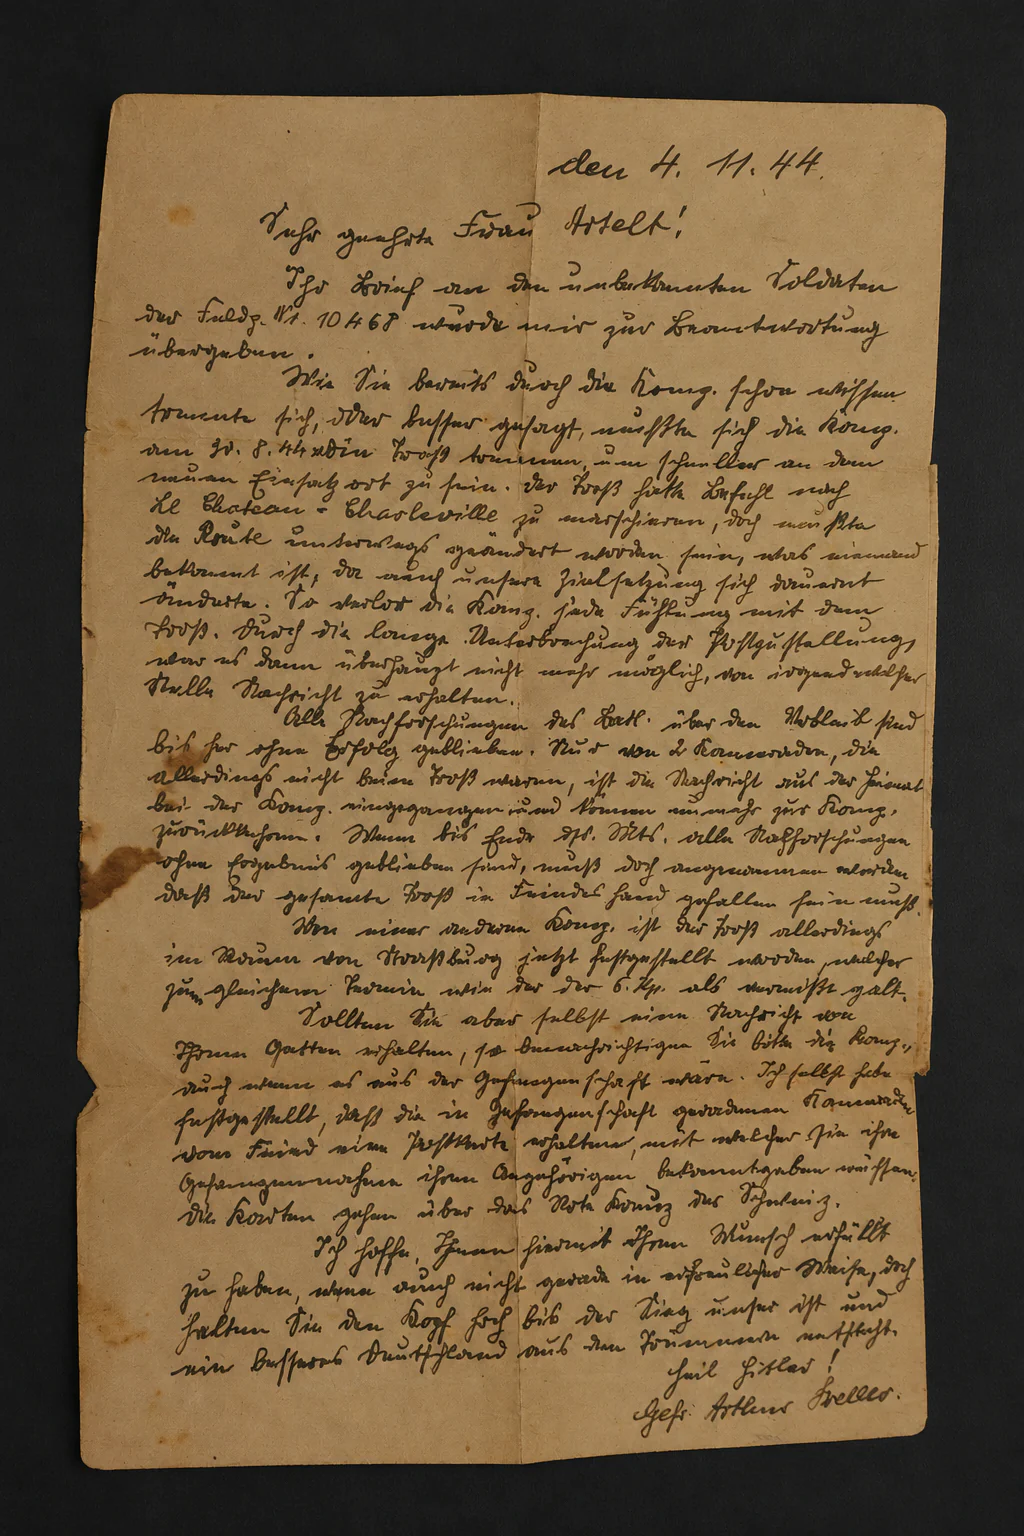 den 4. 11. 44.
Sehr geehrte Frau Artelt!
Ihr Brief an den unbekannten Soldaten
der Feldp. Nr. 10468 wurde mir zur Beantwortung
übergeben.
Wie Sie bereits durch die Komp. schon wissen
trennte sich, oder besser gesagt, mußte sich die Komp.
am 30. 8. 44 vom Troß trennen, um schneller an dem
neuen Einsatzort zu sein. Der Troß hatte Befehl nach
Le Chateau - Charleville zu marschieren, doch mußte
die Route unterwegs geändert worden sein, was niemand
bekannt ist, da auch unsere Zielsetzung sich dauernt
änderte. So verlor die Komp. jede Fühlung mit dem
Troß. Durch die lange Unterbrechung der Postzustellung,
war es dann überhaupt nicht mehr möglich, von irgendwelcher
Stelle Nachricht zu erhalten.
Alle Nachforschungen des Batl. über den Verbleib sind
bis her ohne Erfolg geblieben. Nur von 2 Kameraden, die
allerdings nicht beim Troß waren, ist die Nachricht aus der Heimat
bei der Komp. eingegangen und können nunmehr zur Komp.
zurückkehren. Wenn bis Ende ds. Mts. alle Nachforschungen
ohne Ergebnis geblieben sind, muß doch angenommen werden
daß der gesamte Troß in Feindes hand gefallen sein muß.
Von einer anderen Komp. ist der Troß allerdings
im Raum von Straßburg jetzt festgestellt worden, welcher
zum gleichen Termin wie der der 6. Kp. als vermißt galt.
Sollten Sie aber selbst eine Nachricht von
Ihrem Gatten erhalten, so benachrichtigen Sie bitte die Komp.,
auch wenn es aus der Gefangenschaft wäre. Ich selbst habe
festgestellt, daß die in Gefangenschaft geratenen Kameraden
vom Feind eine Postkarte erhalten, mit welcher sie ihre
Gefangennahme ihren Angehörigen bekanntgeben müssen.
Die Karten gehen über das Rote Kreuz der Schweiz.
Ich hoffe, Ihnen hiermit Ihren Wunsch erfüllt
zu haben, wenn auch nicht gerade in erfreulicher Weise, doch
halten Sie den Kopf hoch bis der Sieg unser ist und
ein besseres Deutschland aus den Trümmern entsteht.
Heil Hitler!
Gefr. Arthur